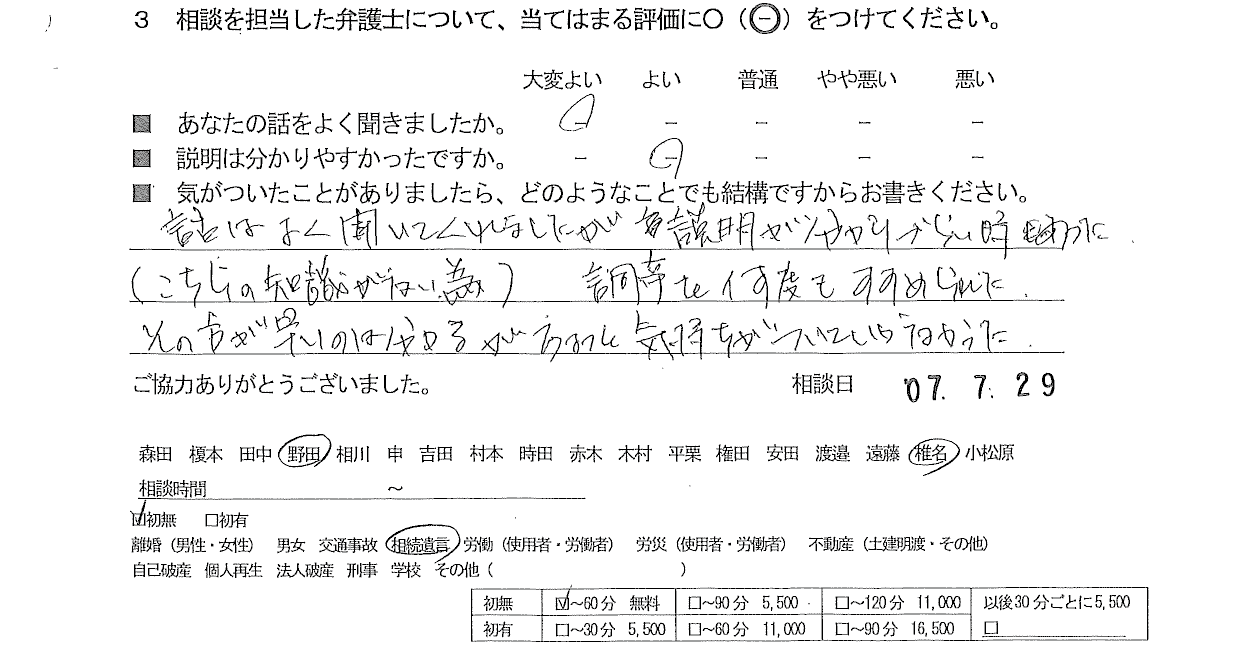 3 相談を担当した弁護士について、当てはまる評価に○（㊀）をつけてください。
大変よい よい 普通 やや悪い 悪い
■ あなたの話をよく聞きましたか。 － － － －
■ 説明は分かりやすかったですか。 － － － － －
■ 気がついたことがありましたら、どのようなことでも結構ですからお書きください。
話はよく聞いてくれましたが 説明が分かりづらい時
(こちらの知識がない為) 調停を何度もすすめられた.
その方が早いのは分かるが 気持ちがついていかなかった.
ご協力ありがとうございました。 相談日 '07. 7. 29
森田 榎本 田中 野田 相川 申 吉田 村本 時田 赤木 木村 平栗 権田 安田 渡邉 遠藤 椎名 小松原
相談時間 ～
☑初無 □初有
離婚（男性・女性） 男女 交通事故 相続遺言 労働（使用者・労働者） 労災（使用者・労働者） 不動産（土建明渡・その他）
自己破産 個人再生 法人破産 刑事 学校 その他（ ）
初無 ☑～60分 無料 □～90分 5,500 □～120分 11,000 以後30分ごとに5,500
初有 □～30分 5,500 □～60分 11,000 □～90分 16,500 □